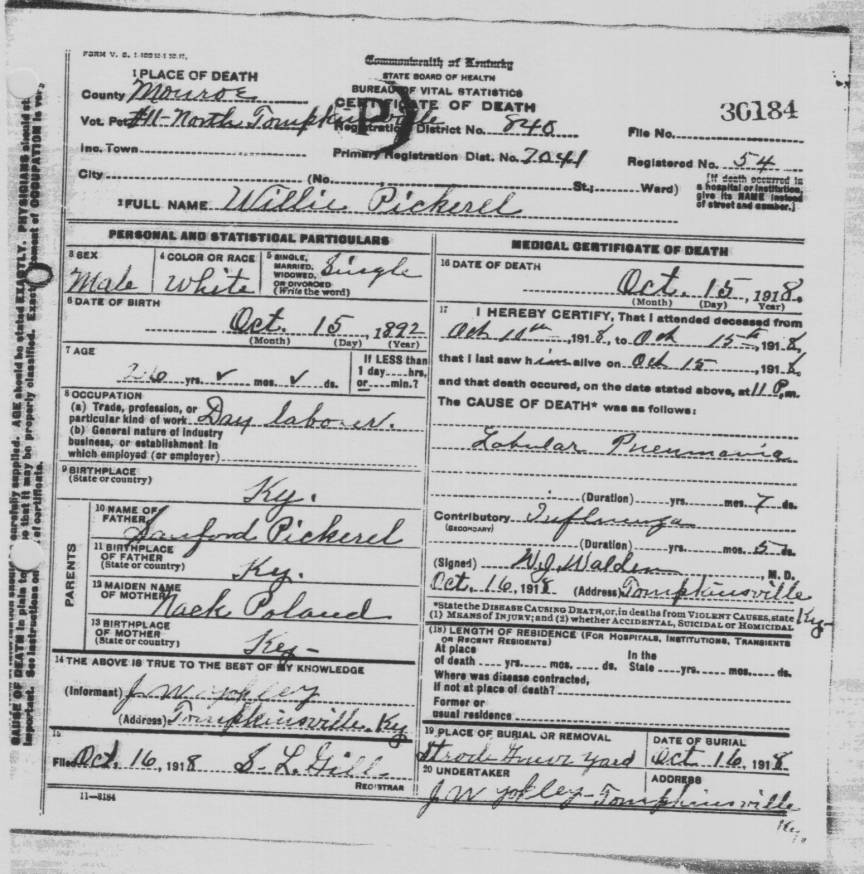 FORM V. S. 1-
Commonwealth of Kentucky
STATE BOARD OF HEALTH
BUREAU OF VITAL STATISTICS
CERTIFICATE OF DEATH
1 PLACE OF DEATH
County Monroe
Vot. Pct #11-North Tompkinsville
Registration District No. 840
File No. 30184
Inc. Town
Primary Registration Dist. No. 7041
Registered No. 54
City (No. St.; Ward)
[If death occurred in
a hospital or institution,
give its NAME instead
of street and number.]
2 FULL NAME Willie Pickerel
PERSONAL AND STATISTICAL PARTICULARS
3 SEX
Male
4 COLOR OR RACE
White
5 SINGLE,
MARRIED,
WIDOWED,
OR DIVORCED
(Write the word)
Single
6 DATE OF BIRTH
Oct. 15, 1892
(Month) (Day) (Year)
7 AGE
26 yrs. ✓ mos. ✓ ds.
If LESS than
1 day hrs.
or min.?
8 OCCUPATION
(a) Trade, profession, or
particular kind of work Day laborer.
(b) General nature of industry
business, or establishment in
which employed (or employer)
9 BIRTHPLACE
(State or country)
Ky.
PARENTS
10 NAME OF
FATHER
Sanford Pickerel
11 BIRTHPLACE
OF FATHER
(State or country)
Ky.
12 MAIDEN NAME
OF MOTHER
Nack Poland
13 BIRTHPLACE
OF MOTHER
(State or country)
Ky-
14 THE ABOVE IS TRUE TO THE BEST OF MY KNOWLEDGE
(Informant) J. W. Yokley
(Address) Tompkinsville, Ky
15
Filed Oct. 16, 1918 S. L. Gill
REGISTRAR
11-3184
MEDICAL CERTIFICATE OF DEATH
16 DATE OF DEATH
Oct. 15, 1918.
(Month) (Day) (Year)
17 I HEREBY CERTIFY, That I attended deceased from
Oct 10th, 1918, to Oct 15th, 1918,
that I last saw him alive on Oct 15, 1918,
and that death occured, on the date stated above, at 11 P.m.
The CAUSE OF DEATH* was as follows:
Lobular Pneumonia
(Duration) yrs. mos. 7 ds.
Contributory Influenza
(SECONDARY)
(Duration) yrs. mos. 5 ds.
(Signed) W. J. Walden, M. D.
Oct. 16, 1918 (Address) Tompkinsville
Ky-
*State the DISEASE CAUSING DEATH, or, in deaths from VIOLENT CAUSES, state
(1) MEANS OF INJURY; and (2) whether ACCIDENTAL, SUICIDAL or HOMICIDAL
(18) LENGTH OF RESIDENCE (FOR HOSPITALS, INSTITUTIONS, TRANSIENTS
OR RECENT RESIDENTS)
At place
of death yrs. mos. ds.
In the
State yrs. mos. ds.
Where was disease contracted,
if not at place of death?
Former or
usual residence
19 PLACE OF BURIAL OR REMOVAL
Strode Grave Yard
DATE OF BURIAL
Oct 16, 1918
20 UNDERTAKER
J. W. Yokley-
ADDRESS
Tompkinsville
Ky.
carefully supplied. AGE should be stated EXACTLY. PHYSICIANS should st
so that it may be properly classified. Exact statement of OCCUPATION is very
CAUSE OF DEATH in plain te
important. See instructions on of certificate.